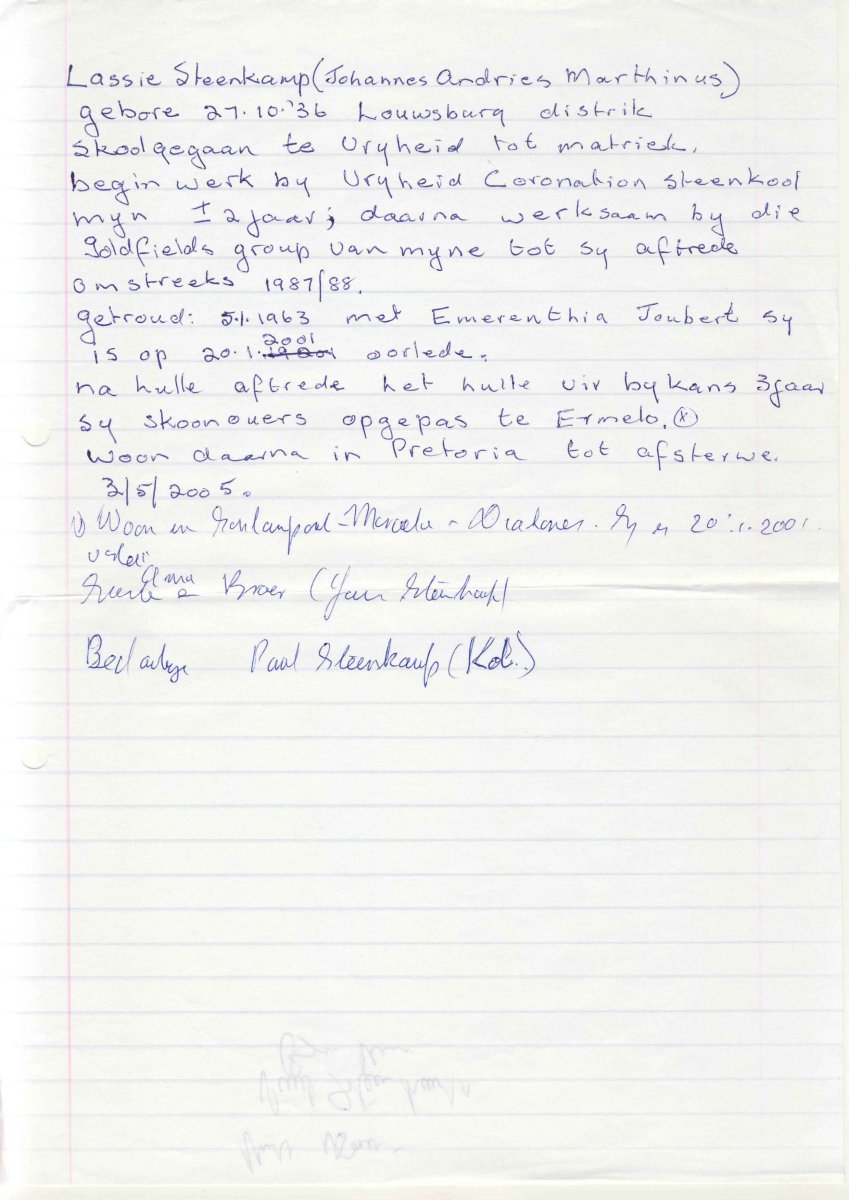 Lassie Steenkamp (Johannes Andries Marthinus)
gebore 27.10.'36 Louwsburg distrik
Skoolgegaan te Vryheid tot matriek.
begin werk by Vryheid Coronation steenkool
myn ± 2 jaar; daarna werksaam by die
Goldfields group van myne tot sy aftrede
omstreeks 1987/88.
getroud: 5.1.1963 met Emerenthia Joubert sy
2001
is op 20.1. oorlede.
na hulle aftrede het hulle vir bykans 3 jaar
sy skoonouers opgepas te Ermelo. (x)
woon daarna in Pretoria tot afsterwe.
3/5/2005.
Woon in 20.1.2001.
Broer (
Paul Steenkamp (